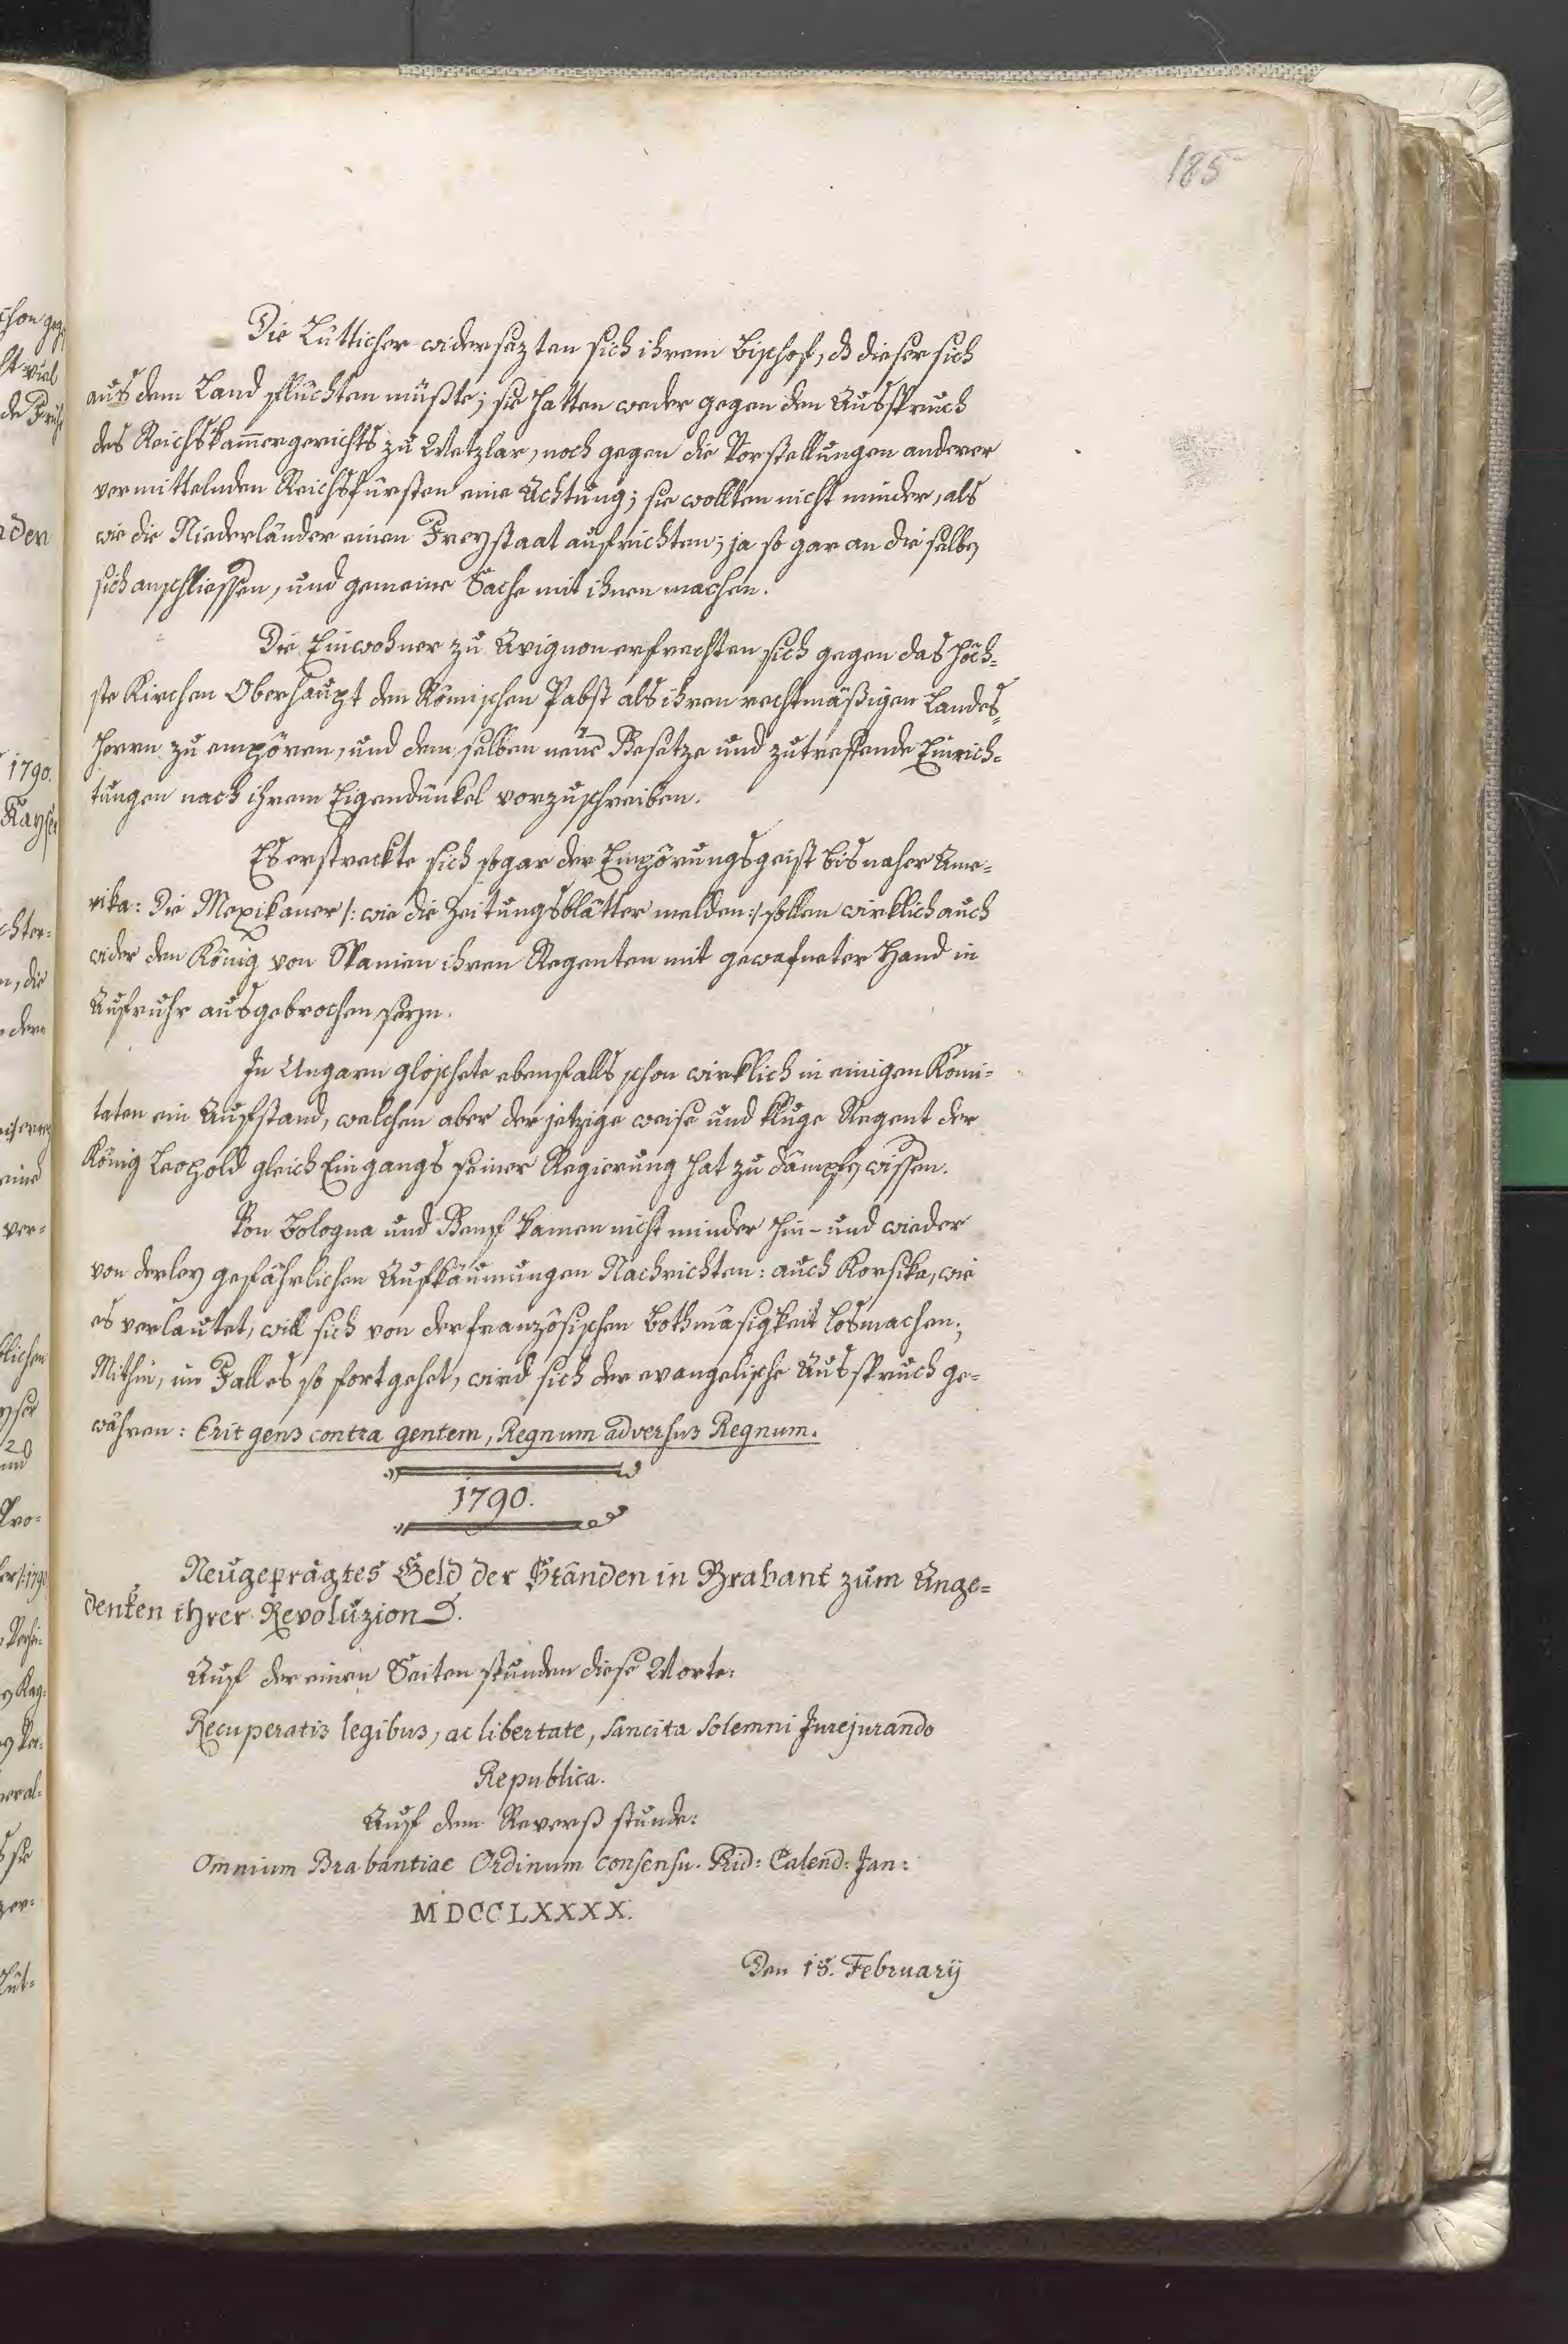 185
Die Lütticher widersezten sich ihrem Bischof, dß dieser sich
aus dem Land flüchten müßte; sie hatten weder gegen den Ausspruch
des Reichskam̅ergerichts zu Wetzlar, noch gegen die Vorstellungen anderer
vermittelnden Reichsfürsten eine Achtung; sie wollten nicht minder, als
wie die Niederländer einen Freystaat aufrichten; ja so gar an die selbe
sich anschliessen, und gemeine Sache mit ihnen machen.
Die Einwohner zu Avignon erfrechten sich gegen das höch=
ste Kirchen Oberhaupt den Römischen Pabst als ihren rechtmäßigen Landes=
herrn zu empören, und dem selben neue Gesetze und zutreffende Einrich=
tungen nach ihrem Eigendünkel vorzuschreiben.
Es erstreckte sich sogar der Empörungsgeist bis naher Ame=
rika: Die Mexikaner /: wie die Zeitungsblätter melden :/ sollen wirklich auch
wider den König von Spanien ihren Regenten mit gewafneter Hand in
Aufruhr ausgebrochen seyn.
In Ungarn gloschete ebenfalls schon wirklich in einigen Komi=
taten ein Aufstand, welchen aber der jetzige weise und kluge Regent der
König Leopold gleich Eingangs seiner Regierung hat zu dämpfen wissen.
Von Bologna und Genf kamen nicht minder hin- und wieder
von derley gefährlichen Aufkäumungen Nachrichten: auch Korsika, wie
es verlautet, will sich von der französischen Bothmäsigkeit losmachen;
Mithin, im Fall es so fortgehet, wird sich der evangelische Ausspruch ge=
währen: Erit gens contra gentem, Regnum adversus Regnum.
1790.
Neugeprägtes Geld der Ständen in Brabant zum Ange=
denken ihrer Revoluzion
Auf der einen Seiten stunden diese Worte:
Recuperatis legibus, ac libertate, sancita solemni Jurejurando
Republica.
Auf dem Reverß stunde:
Omnium Brabantiae Ordinum consensu. Prid: Calend: Jan:
MDCCLXXXX.
Den 18. February